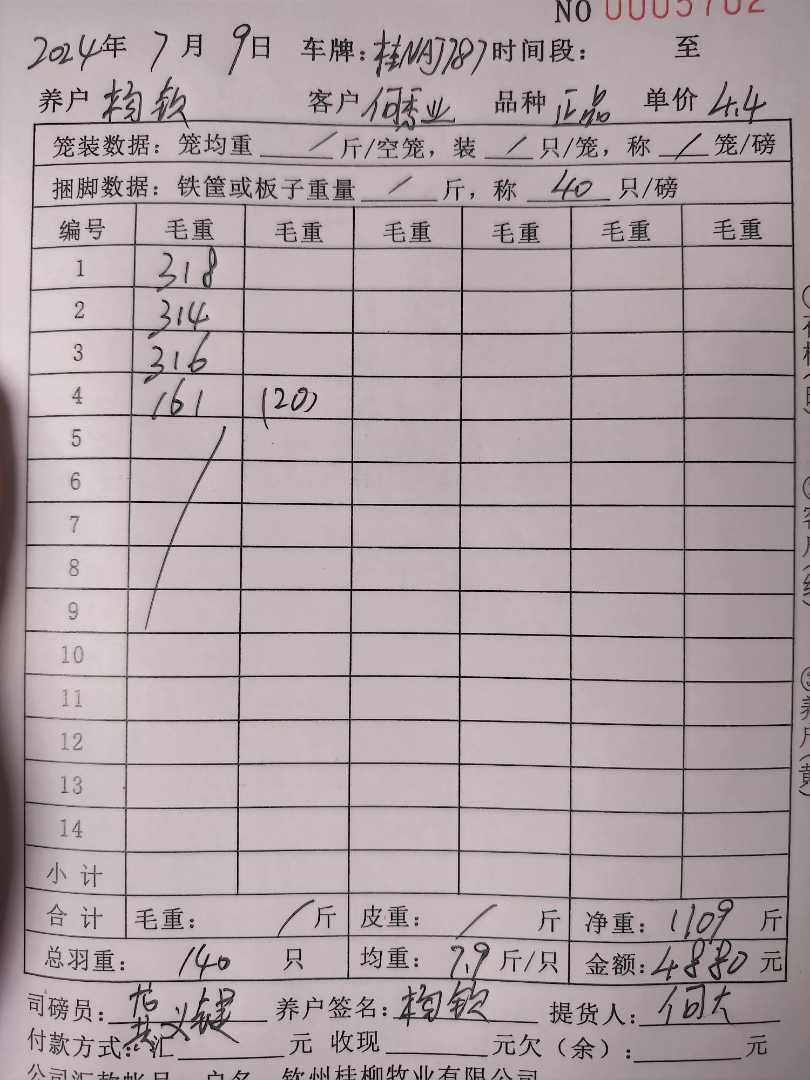 NO 0005702
2024年 7月 9日 车牌:桂NAJ787时间段: 至
养户 客户 何 业 品种 正品 单价 4.4
笼装数据: 笼均重 / 斤/空笼, 装 / 只/笼, 称 / 笼/磅
捆脚数据: 铁筐或板子重量 / 斤, 称 40 只/磅
编号 毛重 毛重 毛重 毛重 毛重 毛重
1 318
2 314
3 316
4 161 (20)
5
6
7
8
9
10
11
12
13
14
小计
合计 毛重: / 斤 皮重: / 斤 净重: 1109 斤
总羽重: 140 只 均重: 7.9 斤/只 金额: 4880 元
司磅员: 养户签名: 提货人: 何大
付款方式: 汇 元 收现 元欠(余): 元
钦州桂柳牧业有限公司